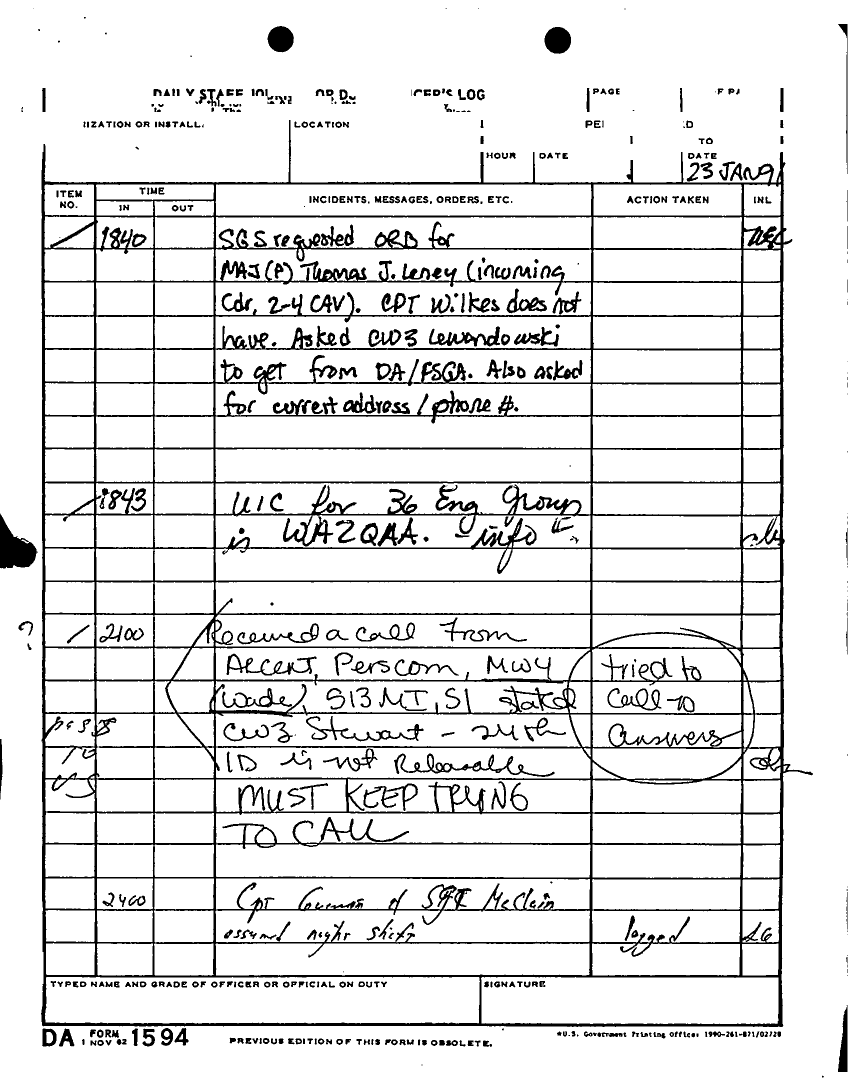 DAILY STAFF
LOG
PAGE
IZATION OR INSTALL
LOCATION
TO
HOUR
DATE
DATE
23 JAN 91
ITEM NO.
TIME
IN
OUT
INCIDENTS, MESSAGES, ORDERS, ETC.
ACTION TAKEN
INL
1840
SGS requested ORB for
MAJ(P) Thomas J. Leney (incoming
Cdr, 2-4 CAV). CPT Wilkes does not
have. Asked CW3 Lewandowski
to get from DA/FSGA. Also asked
for current address / phone #.
1843
UIC for 36 Eng Group
is WAZQAA. - info
?
2100
Received a call From
ARCENT, Perscom, MW4
(Wade), 513 MI, S1 stated
CW3 Stewart - 24th
ID is not Releasable
MUST KEEP TRYING
TO CALL
tried to
call no
answers
2400
Cpt McClain
assumed night shift
logged
LG
TYPED NAME AND GRADE OF OFFICER OR OFFICIAL ON DUTY
SIGNATURE
DA FORM 1594
1 NOV 62
PREVIOUS EDITION OF THIS FORM IS OBSOLETE.
*U.S. Government Printing Office: 1990-261-871/02728